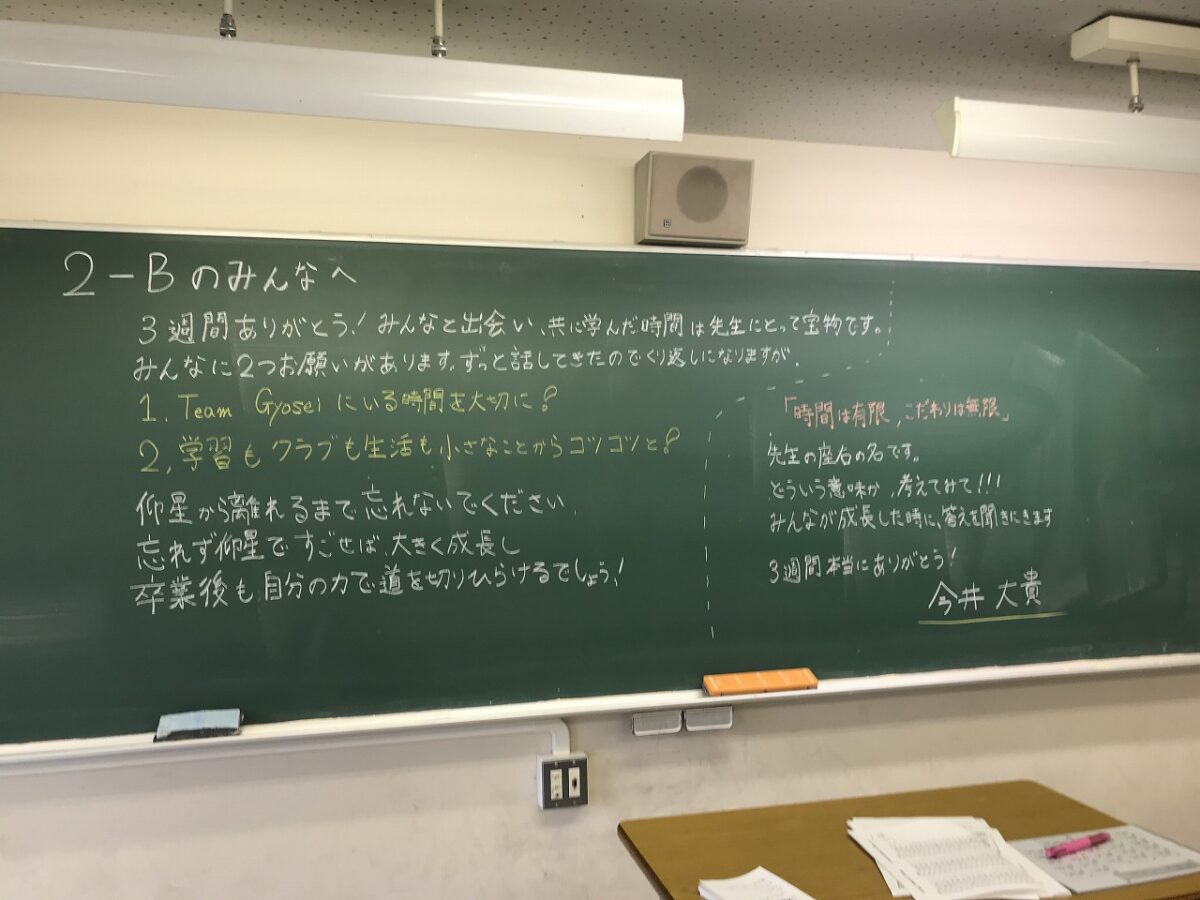 2-Bのみんなへ
3週間ありがとう!みんなと出会い、共に学んだ時間は先生にとって宝物です。
みんなに2つお願いがあります。ずっと話してきたのでくり返しになりますが、
1. Team Gyoseiにいる時間を大切に!
2. 学習もクラブも生活も小さなことからコツコツと!
仰星から離れるまで忘れないでください。
忘れず仰星ですごせば、大きく成長し
卒業後も自分の力で道を切りひらけるでしょう!
「時間は有限、こだわりは無限」
先生の座右の名です。
どういう意味か、考えてみて!!!
みんなが成長した時に、答えを聞きにきます
3週間本当にありがとう!
今井 大貴